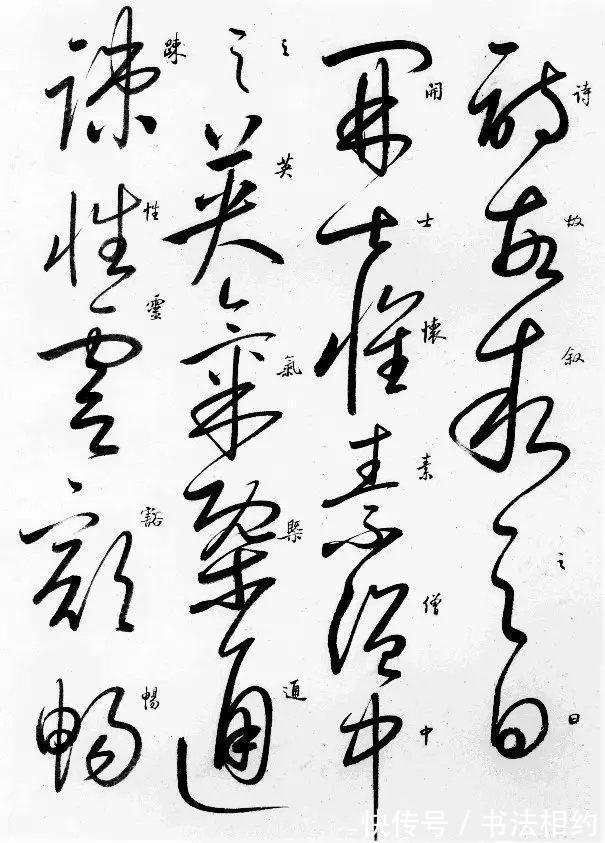 诗故叙之曰
開士懷素僧中
之英氣槩通
踈性靈豁暢
快传号 / 书法相约